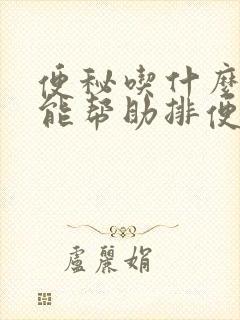 便秘喫什麼
能幫助排便
盧麗娟